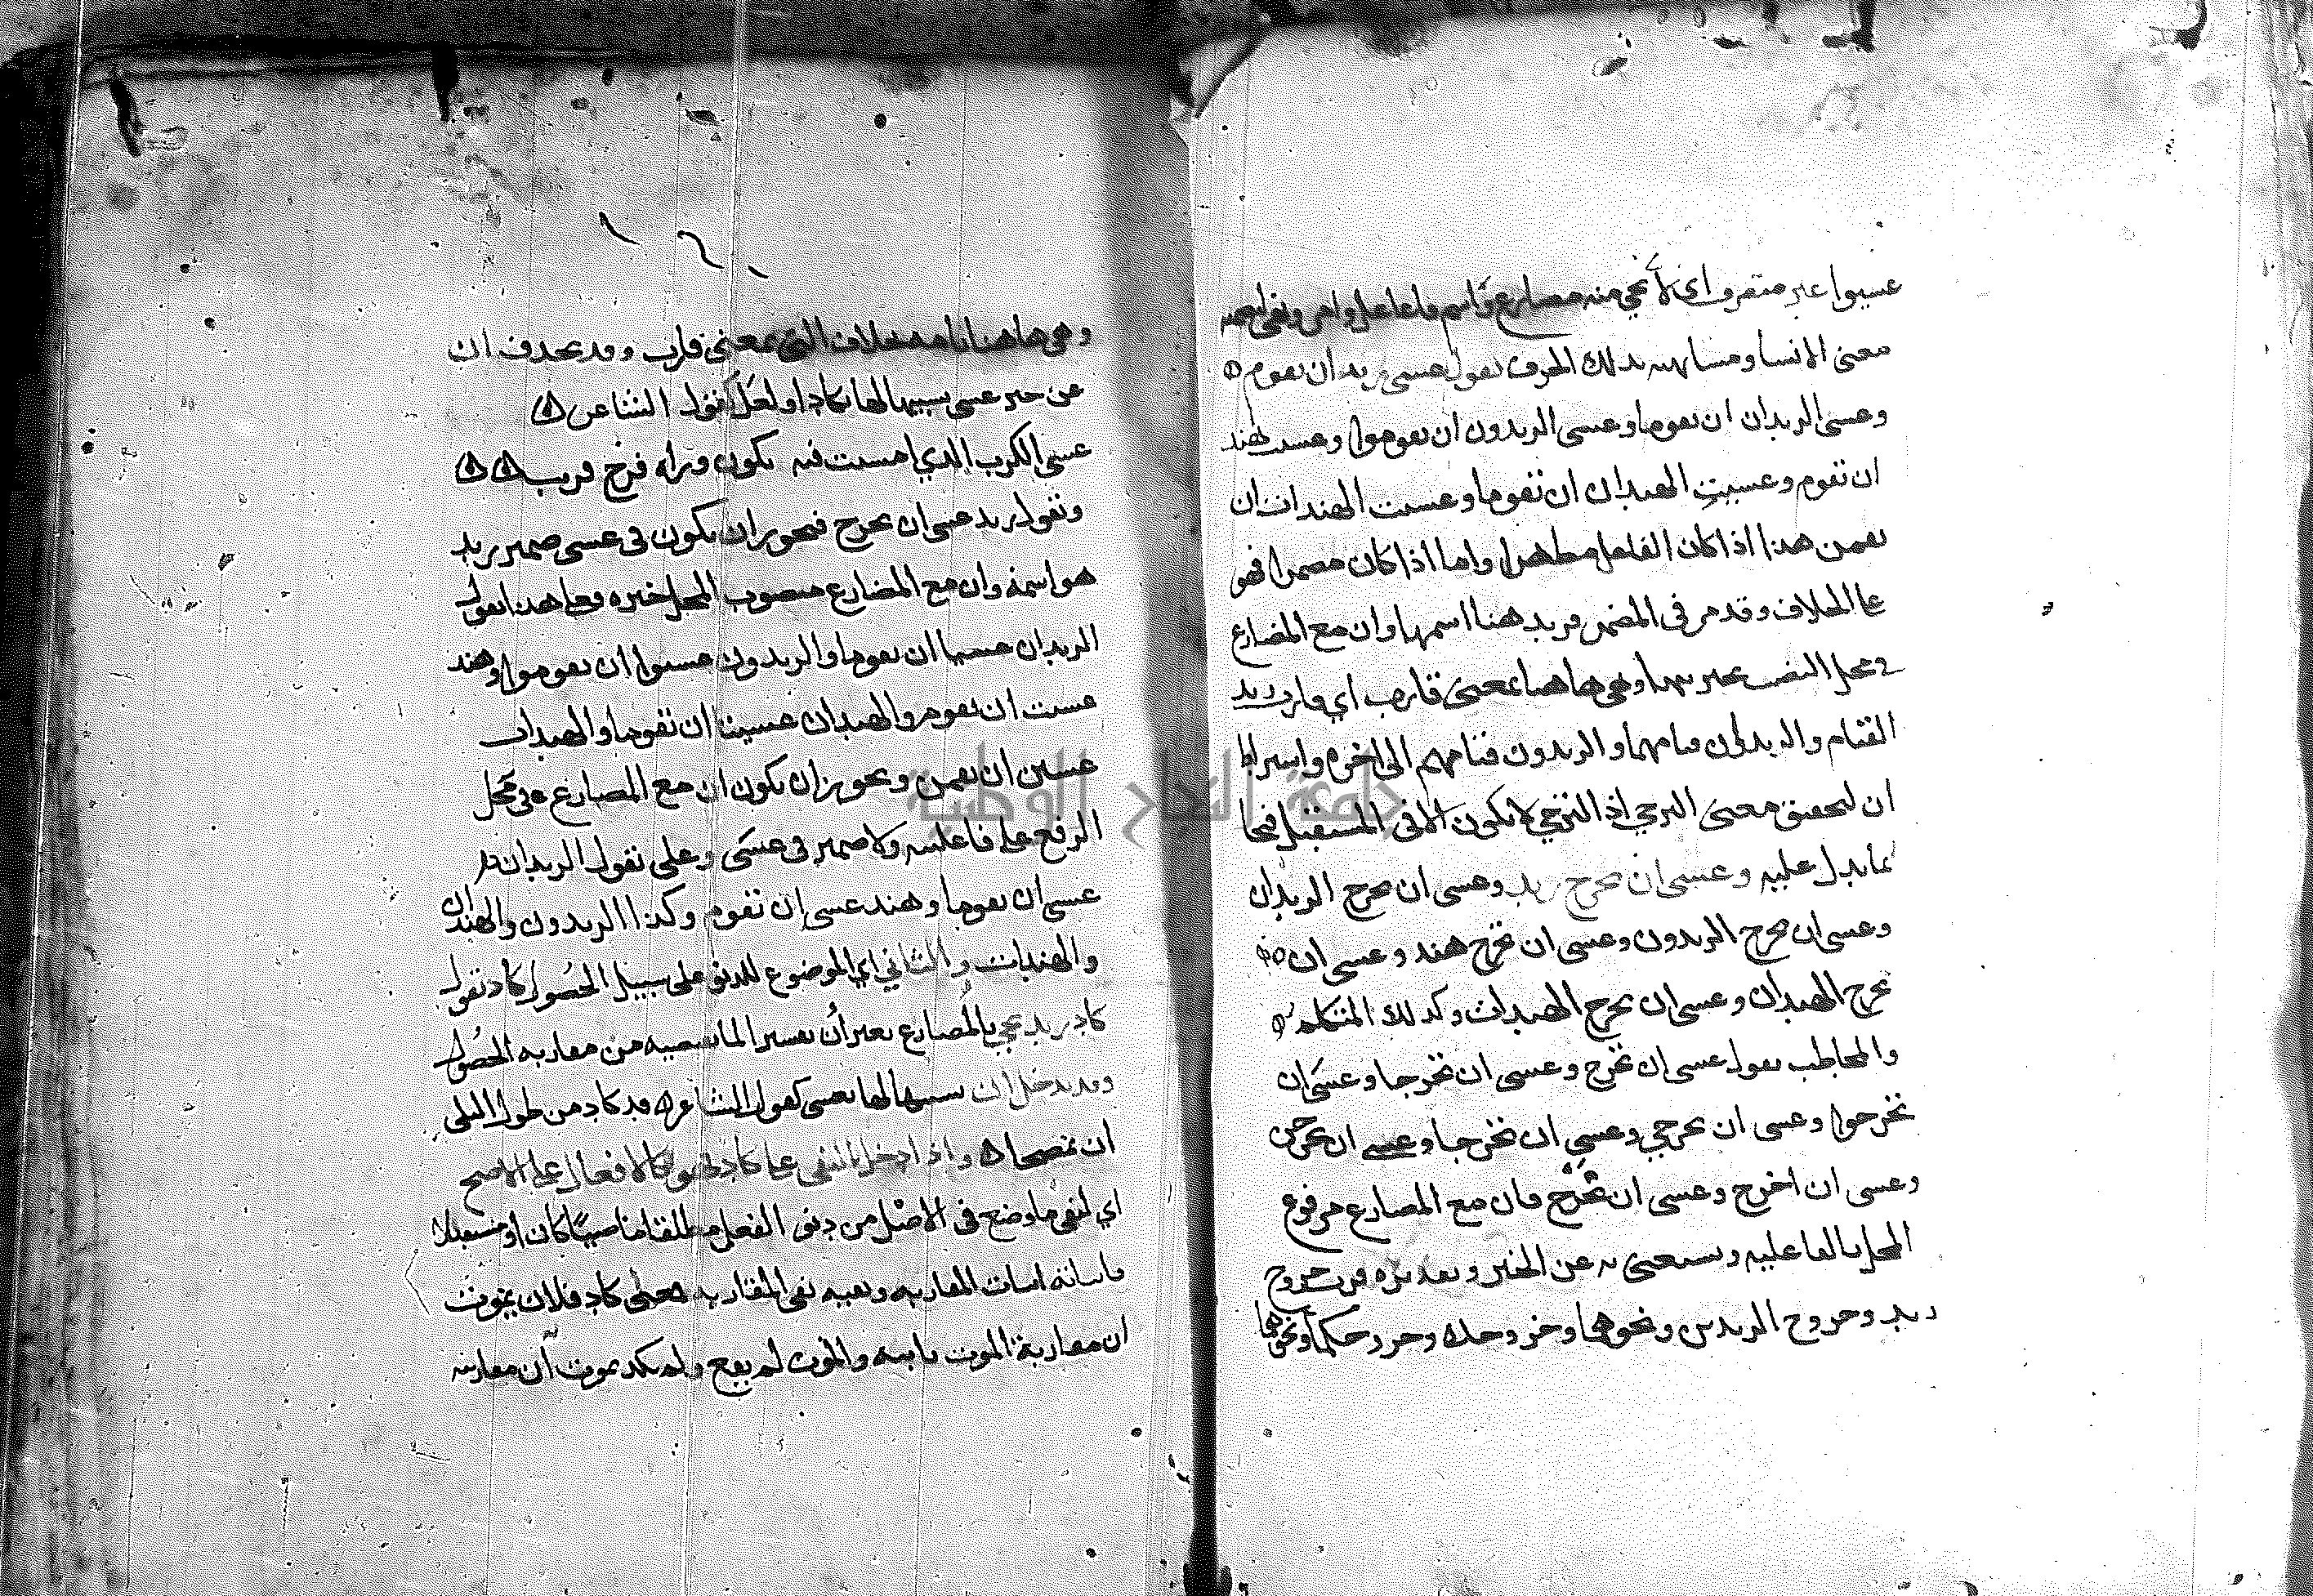 عسوا غير متصرف اي لا يجي منه مضارع واسم فاعل وامر ونهي لتضمنه
معنى الانشا ومشابهته بذلك الحرف تقول عسى زيد ان يقوم
وعسى الزيدان ان يقوما وعسى الزيدون ان يقوموا وعست هند
ان تقوم وعسيت الهندان ان تقوما وعست الهندات ان
يقمن هذا اذا كان الفاعل مظهرا واما اذا كان مضمرا فهو
على الخلاف وقد مر في المضمر فزيد هنا اسمها وان مع المضارع
في محل النصب بخبريتها وهي هاهنا بمعنى قارب اي قارب زيد
القيام والزيدان قيامهما والزيدون قيامهم الى اخره واشتراط
ان لتحقيق معنى الترجي اذ الترجي لا يكون الا في المستقبل فجا
بما يدل عليه وعسى ان يخرج زيد وعسى ان يخرج الزيدان
وعسى ان يخرج الزيدون وعسى ان تخرج هند وعسى ان
تخرج الهندان وعسى ان يخرج الهندات وكذلك المتكلم
والمخاطب تقول عسى ان تخرج وعسى ان تخرجا وعسى ان
تخرجوا وعسى ان تخرجي وعسى ان تخرجا وعسى ان تخرجن
وعسى ان اخرج وعسى ان نخرج فان مع المضارع مرفوع
المحل بالفاعلية ويستغنى به عن الخبر وتقديره قرب خروج
زيد وخروج الزيدين ونحوهما وخروجك وخروجكما ونحوهما
وهي هاهنا تامة بخلاف التي بمعنى قارب وقد يحذف ان
عن خبر عسى تشبيها لها بكاد او لعل كقول الشاعر
عسى الكرب الذي امسيت فيه يكون وراه فرج قريب
وتقول زيد عسى ان يخرج فيجوز ان يكون في عسى ضمير زيد
هو اسمه وان مع المضارع منصوب المحل خبره وعلى هذا تقول
الزيدان عسيا ان يقوما والزيدون عسوا ان يقوموا وهند
عست ان تقوم والهندان عسيتا ان تقوما والهندات
عسين ان يقمن ويجوز ان يكون ان مع المضارع في محل
الرفع على فاعليته ولا ضمير في عسى وعلى تقول الزيدان
عسى ان يقوما وهند عسى ان تقوم وكذا الزيدون والهندان
والهندات والثاني اي الموضوع للدنو على سبيل الحصول كاد تقول
كاد زيد يجي بالمضارع بغير ان تفسيرا لما تضمنته من مقاربة الحصول
وقد يدخل ان تشبيها لها بعسى كقول الشاعر قد كاد من طول البلى
ان يمصحا واذا دخل النفي على كاد فهو كالافعال على الاصح
اي لنفي ما وضع في الاصل من دنو الفعل مطلقا ماضيا كان او مستقبلا
فاثباته اثبات المقاربة ونفيه نفي المقاربة فمعنى كاد فلان يموت
ان مقاربة الموت ثابتة والموت لم يقع ولم يكد يموت ان مقاربته
جامعة النجاح الوطنية